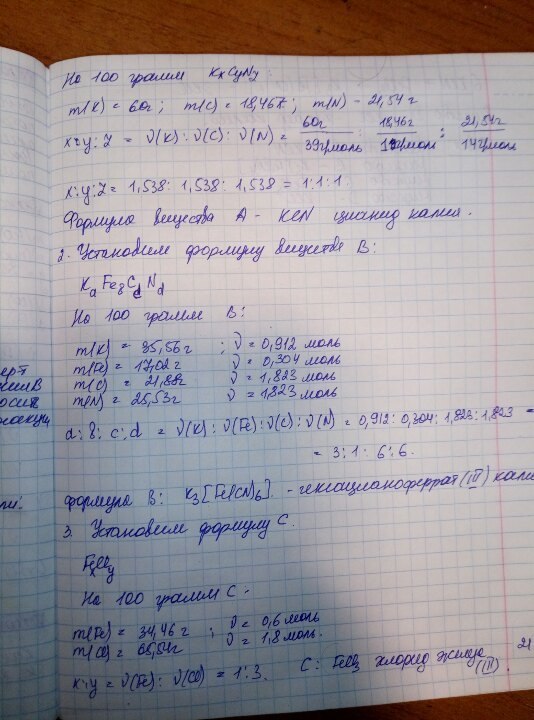 На 100 грамм KxCyNz:
m(K) = 60г; m(C) = 18,46г; m(N) - 21,54г
x:y:z = ν(K) : ν(C) : ν(N) = 60г/39г/моль : 18,46г/12г/моль : 21,54г/14г/моль
x:y:z = 1,538 : 1,538 : 1,538 = 1:1:1.
Формула вещества A - KCN цианид калия.
2. Установим формулу вещества B:
KaFeвCcNd
На 100 грамм B:
m(K) = 35,56г ; ν = 0,912 моль
m(Fe) = 17,02г ν = 0,304 моль
m(C) = 21,88г ν = 1,823 моль
m(N) = 25,53г ν = 1,823 моль
a:в:c:d = ν(K) : ν(Fe) : ν(C) : ν(N) = 0,912 : 0,304 : 1,823 : 1,823 =
= 3:1:6:6.
формула B: K3[Fe(CN)6] - гексацианоферрат (III) калия
3. Установим формулу C.
FexCly
На 100 грамм C:
m(Fe) = 34,46г ; ν = 0,6 моль
m(Cl) = 65,54г ν = 1,8 моль.
x:y = ν(Fe) : ν(Cl) = 1:3. C: FeCl3 хлорид железа (III).
21